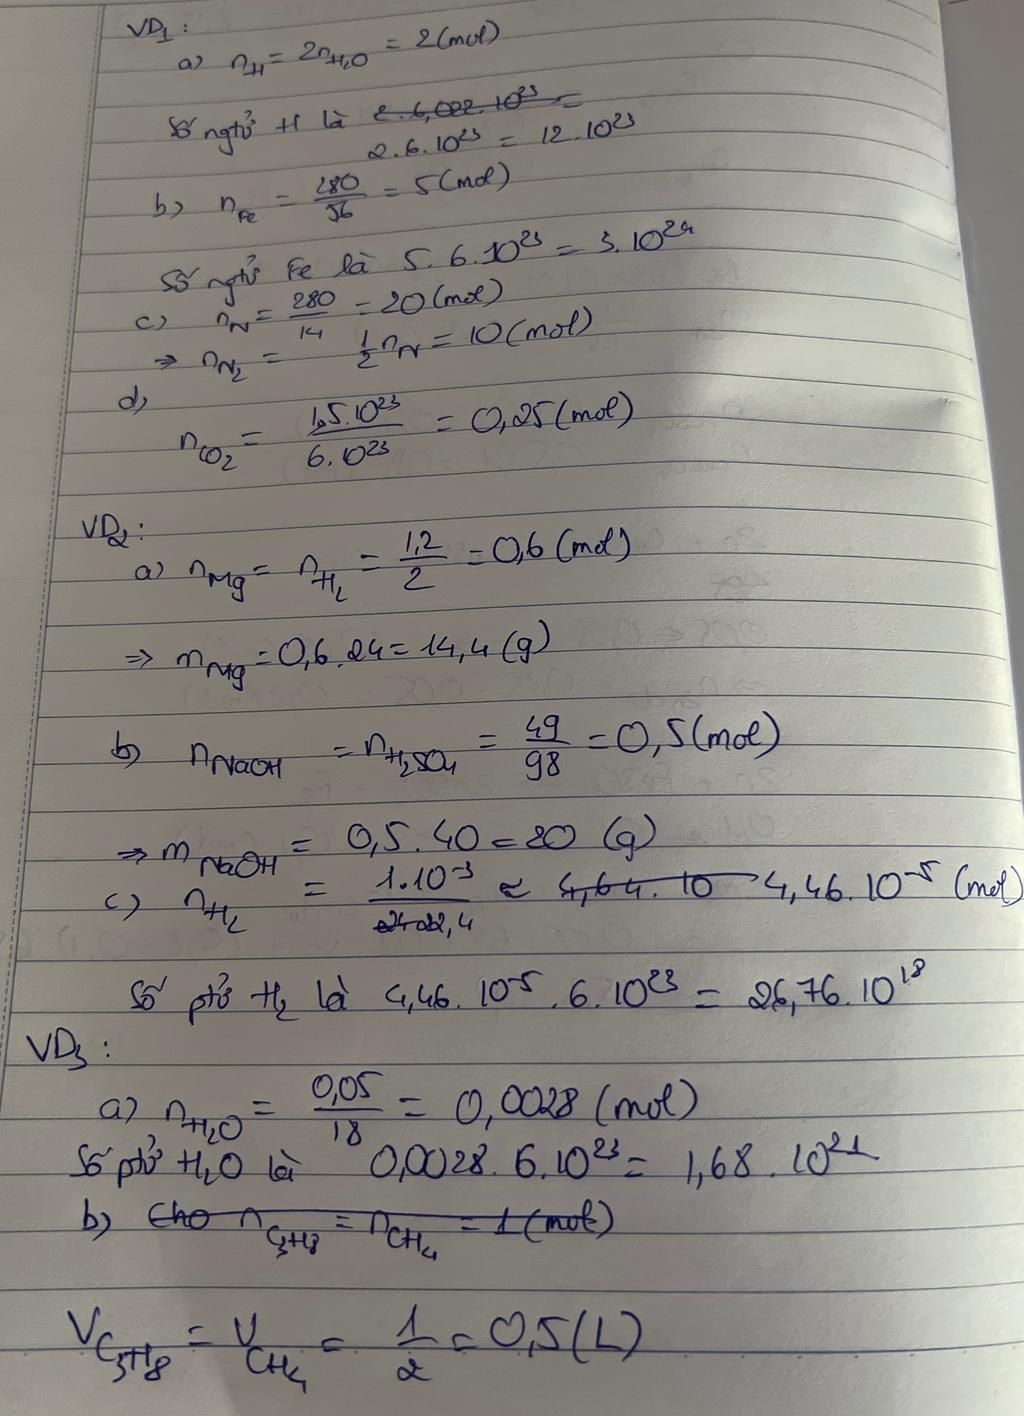 VD₁:
a) n_H = 2n_H₂O = 2 (mol)
Số ngtử H là 2. 6,022. 10²³ =
2. 6. 10²³ = 12. 10²³
b) n_Fe = 280/56 = 5 (mol)
Số ngtử Fe là 5. 6. 10²³ = 3. 10²⁴
c) n_N = 280/14 = 20 (mol)
⇒ n_N₂ = 1/2 n_N = 10 (mol)
d)
n_CO₂ = 1,5. 10²³/6. 10²³ = 0,25 (mol)
VD₂:
a) n_Mg = n_H₂ = 1,2/2 = 0,6 (mol)
⇒ m_Mg = 0,6. 24 = 14,4 (g)
b) n_NaOH = n_H₂SO₄ = 49/98 = 0,5 (mol)
⇒ m_NaOH = 0,5. 40 = 20 (g)
c) n_H₂ = 1. 10⁻³/22,4 ≈ 4,64. 10 4,46. 10⁻⁵ (mol)
Số ptử H₂ là 4,46. 10⁻⁵. 6. 10²³ = 26,76. 10¹⁸
VD₃:
a) n_H₂O = 0,05/18 = 0,0028 (mol)
Số ptử H₂O là 0,0028. 6. 10²³ = 1,68. 10²¹
b) Cho n_C₃H₈ = n_CH₄ = 1 (mol)
V_C₃H₈ = V_CH₄ = 1/2 = 0,5 (L)